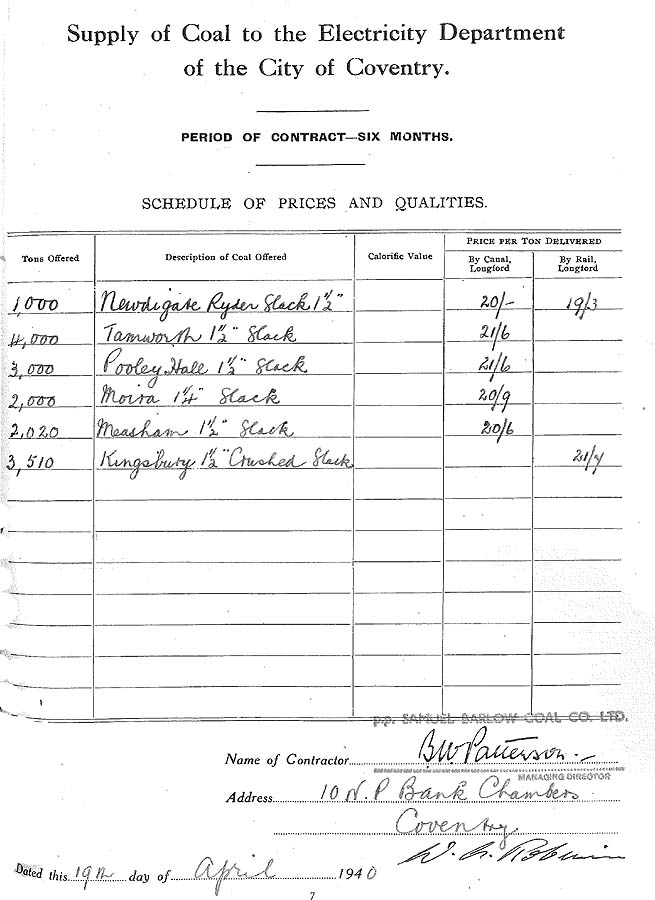 Supply of Coal to the Electricity Department
of the City of Coventry.
PERIOD OF CONTRACT—SIX MONTHS.
SCHEDULE OF PRICES AND QUALITIES.
Tons Offered Description of Coal Offered Calorific Value PRICE PER TON DELIVERED
By Canal, Longford By Rail, Longford
1,000 Newdigate Ryder Slack 1½" 20/- 19/3
4,000 Tamworth 1½" Slack 21/6
3,000 Pooley Hall 1½" Slack 21/6
2,000 Moira 1¼" Slack 20/9
2,020 Measham 1½" Slack 20/6
3,510 Kingsbury 1½" Crushed Slack 21/7
p.p. SAMUEL BARLOW COAL CO. LTD.
Name of Contractor B W Patterson
MANAGING DIRECTOR
Address 10 N. P Bank Chambers
Coventry
Dated this 19th day of April 1940
7